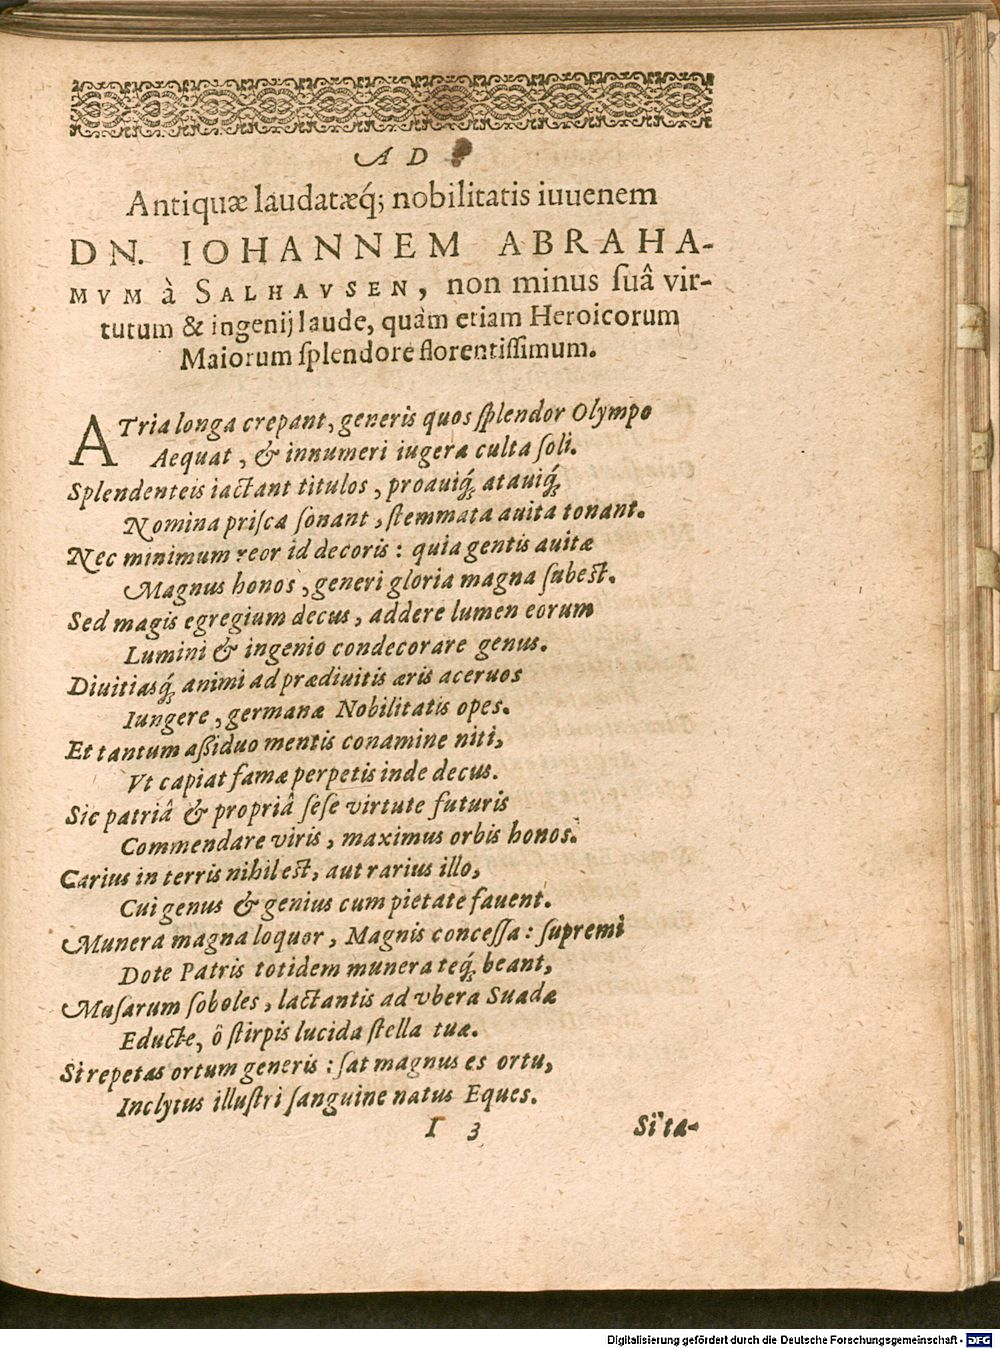 AD
Antiquæ laudatæq́; nobilitatis iuuenem
DN. IOHANNEM ABRAHA-
MVM à SALHAVSEN, non minus ſuâ vir-
tutum & ingenij laude, quàm etiam Heroicorum
Maiorum ſplendore florentiſſimum.
ATria longa crepant, generis quos ſplendor Olympo
Aequat, & innumeri iugera culta ſoli.
Splendenteis iactant titulos, proauiq́; atauiq́;
Nomina priſca ſonant, ſtemmata auita tonant.
Nec minimum reor id decoris: quia gentis auitæ
Magnus honos, generi gloria magna ſubest.
Sed magis egregium decus, addere lumen eorum
Lumini & ingenio condecorare genus.
Diuitiasq́; animi ad prædiuitis æris aceruos
Iungere, germanæ Nobilitatis opes.
Et tantum aßiduo mentis conamine niti,
Vt capiat famæ perpetis inde decus.
Sic patriâ & propriâ ſeſe virtute futuris
Commendare viris, maximus orbis honos.
Carius in terris nihil est, aut rarius illo,
Cui genus & genius cum pietate fauent.
Munera magna loquor, Magnis conceſſa: ſupremi
Dote Patris totidem munera teq́; beant,
Muſarum ſoboles, lactantis ad vbera Suadæ
Educte, ô ſtirpis lucida ſtella tuæ.
Si repetas ortum generis: ſat magnus es ortu,
Inclytus illuſtri ſanguine natus Eques.
I 3 Si ta-
Digitalisierung gefördert durch die Deutsche Forschungsgemeinschaft - DFG